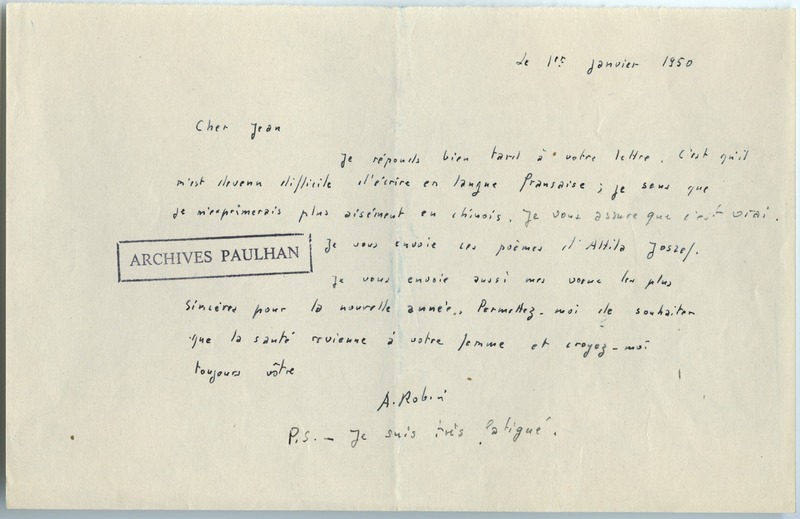 Le 1er janvier 1950
Cher Jean
Je réponds bien tard à votre lettre. C'est qu'il
m'est devenu difficile d'écrire en langue française ; je sens que
je m'exprimerais plus aisément en chinois. Je vous assure que c'est vrai.
Je vous envoie ces poèmes d'Attila Jozsef.
ARCHIVES PAULHAN
Je vous envoie aussi mes voeux les plus
sincères pour la nouvelle année. Permettez-moi de souhaiter
que la santé revienne à votre femme et croyez-moi
toujours vôtre
A. Robin
P.S. — Je suis très fatigué.